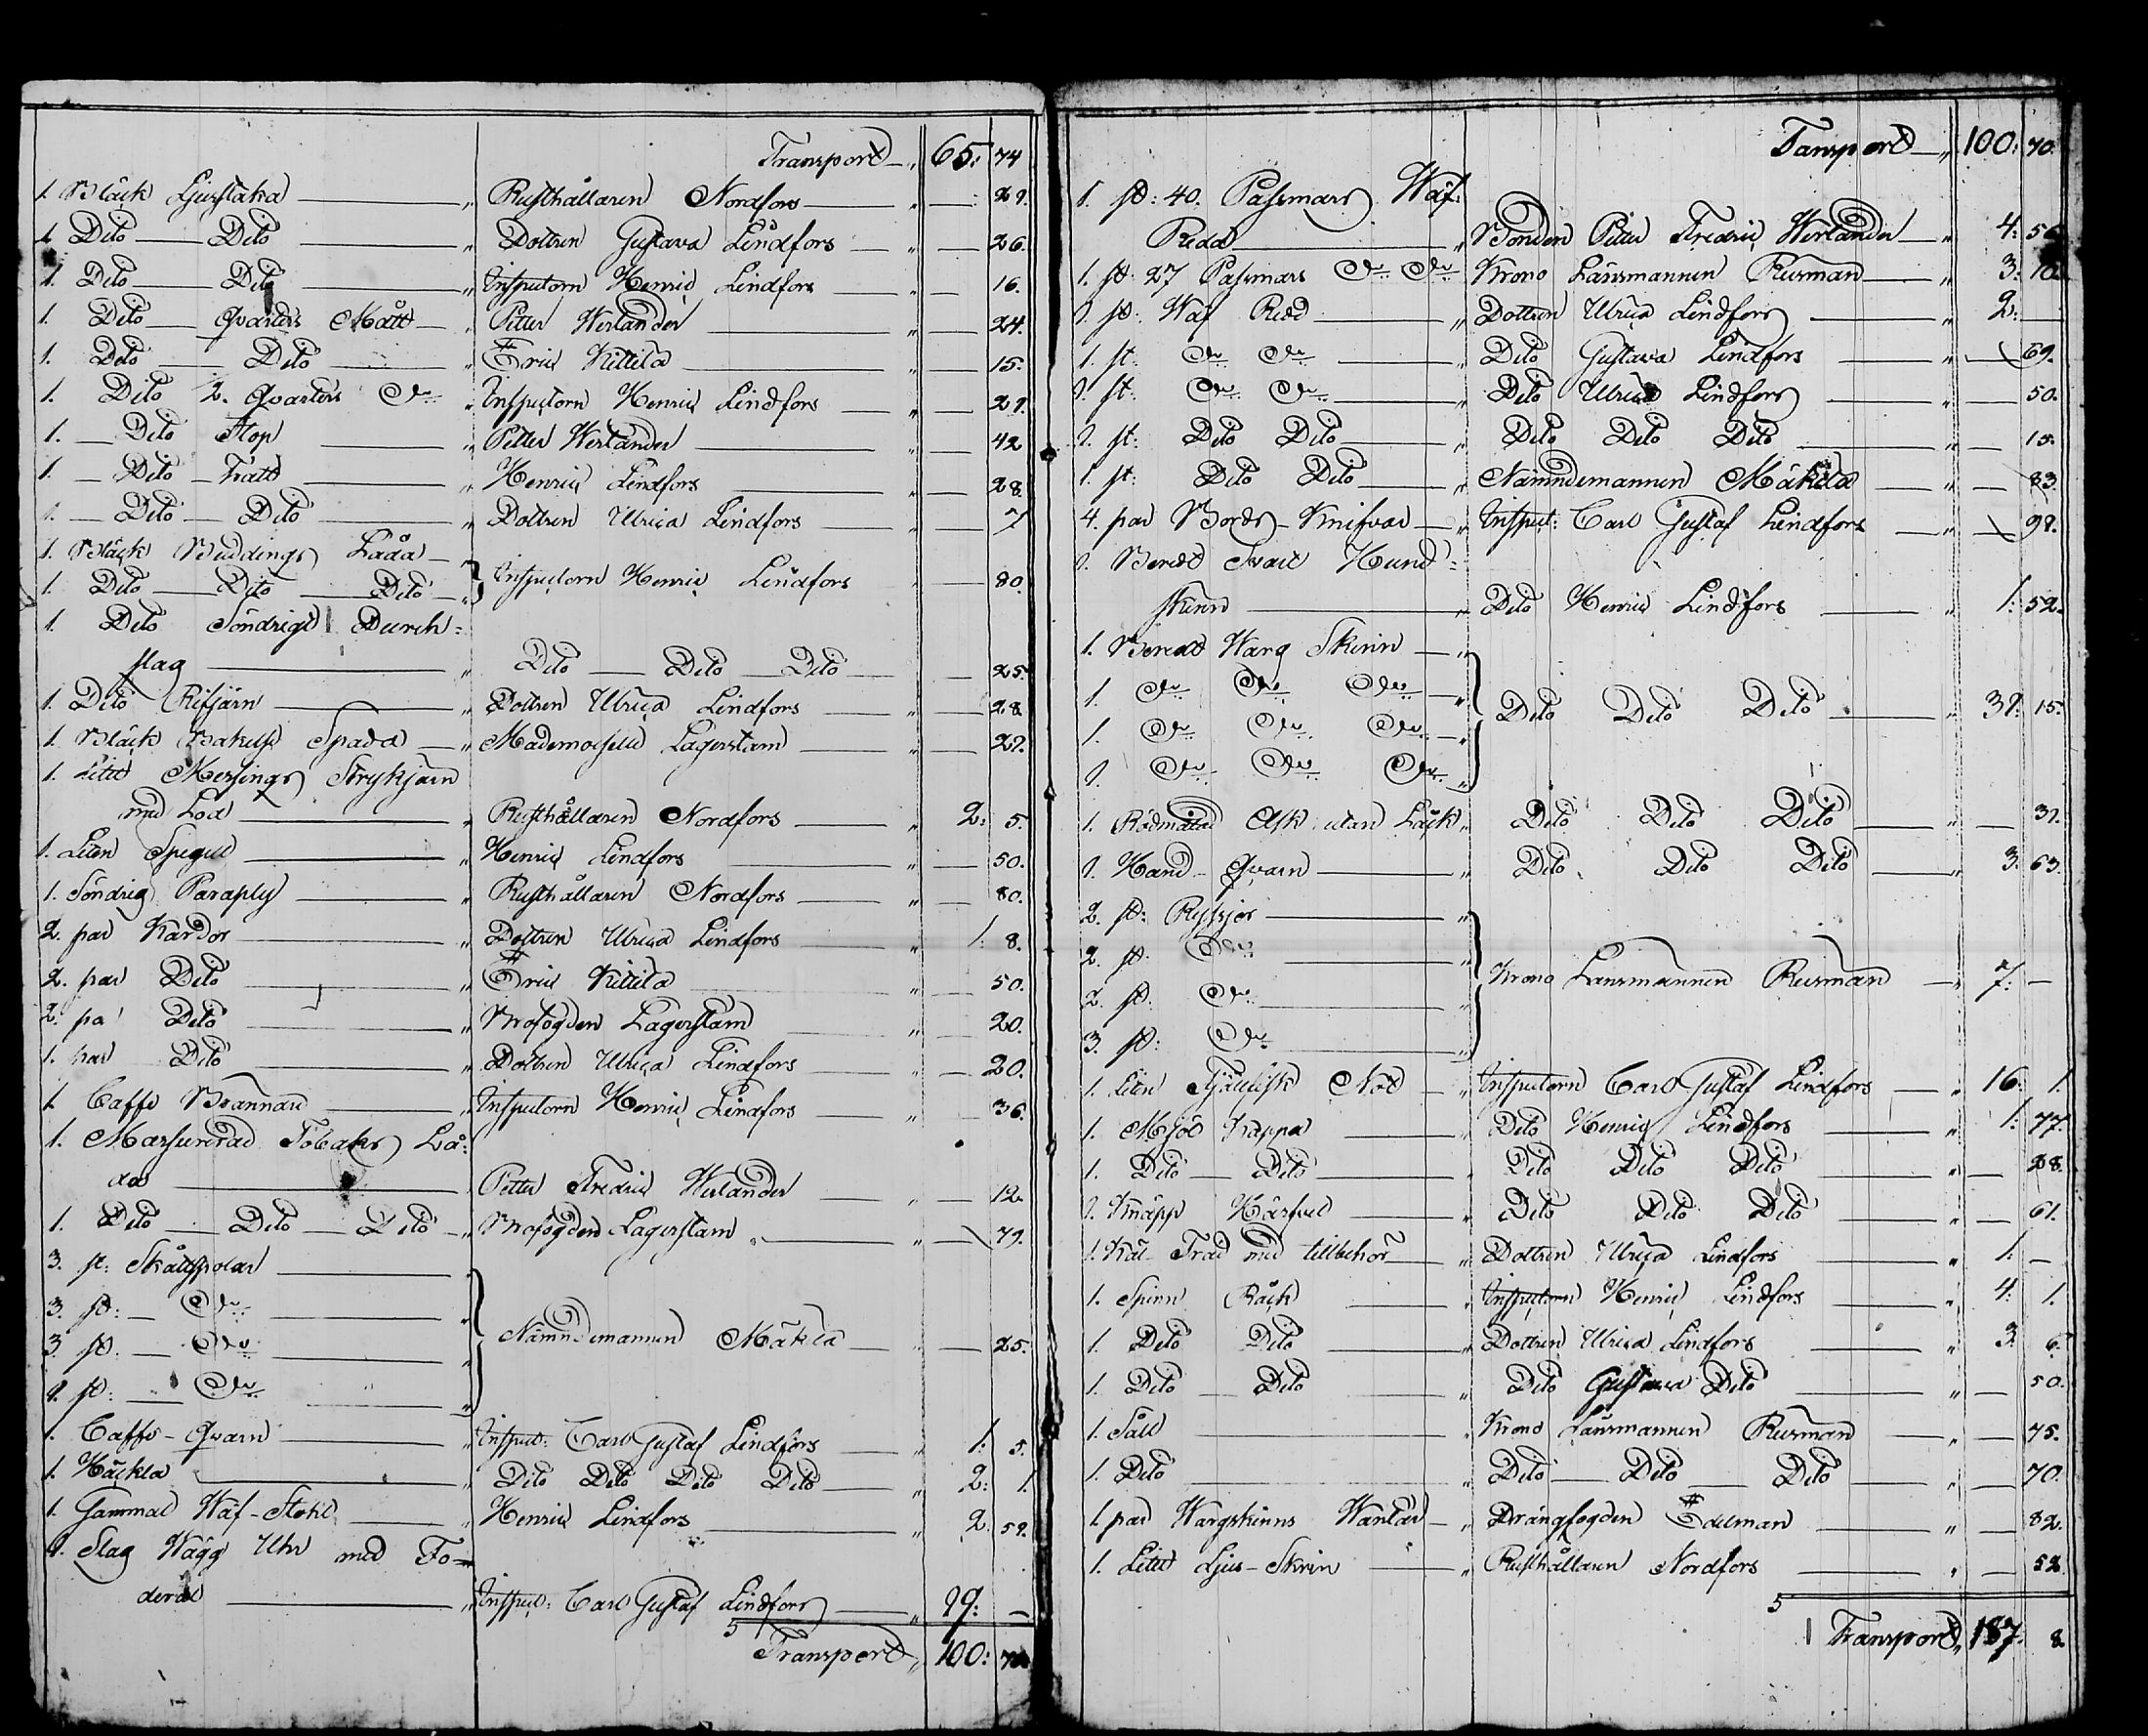 Transport 65: 74
1. Bläck Ljusstaka Rusthållaren Nordfors 29.
1. Dito Dito Dottren Gustava Lindfors 26.
1. Dito Dito Inspectorn Henric Lindfors 16.
1. Dito Qvarters Mått Petter Werlander 24.
1. Dito Dito Eric Kittila 15.
1. Dito 2. Qvarters Do Inspectorn Henric Lindfors 29.
1. Dito Stop Petter Werlander 42
1. Dito Tratt Henric Lindfors 28.
1. Dito Dito Dottren Ulrica Lindfors 7
1. Bläck Buddings Låda
1. Dito Dito Dito Inspectorn Henric Lindfors 80.
1. Dito Söndrigt Durch:
slag Dito Dito Dito 25.
1. Dito Rifjärn Dottren Ulrica Lindfors 28.
1. Bläck Bakels Spada Mademoiselle Lagerstam 29.
1. Litet Messings Strykjärn
med Lod Rusthållaren Nordfors 2: 5.
1. Liten Spegel Henric Lindfors 50.
1. Söndrig Paraply Rusthållaren Nordfors 80.
2. par Kardor Dottren Ulrica Lindfors 1: 8.
2. par Dito Eric Kittila 50.
2. pa Dito Brofogden Lagerstam 20.
1. par Dito Dottren Ulrica Lindfors 20.
1. Caffe Brännare Inspectorn Henric Lindfors 36.
1. Marsurerad Tobaks Lå:
da Petter Fredric Werlander 12.
1. Dito Dito Dito Brofogden Lagerstam 79.
3. st: Skåttspolar
3. st: Do
3. st: Do Nämndemannen Mäkelä 25.
9. st: Do
1. Caffe-Qvarn Inspect: Carl Gustaf Lindfors 1: 5.
1. Häckla Dito Dito Dito Dito 2: 1.
1. Gammal Wäf-Stohl Henric Lindfors 2: 59.
1. Slag Wägg Uhr med Fo=
deral Inspect: Carl Gustaf Lindfors 29: —
Transport 100: 70
Tansport 100: 70.
1. st: 40. Passmars Wäf:
Reda Bonden Petter Fredric Werlander 4: 56
1. st: 27 Passmars Do Do Krono Länsmannen Rusman 3: 10.
1. st: Wäf Red Dottren Ulrica Lindfors 2:
1. st: Do Do Dito Gustava Lindfors 69.
1. st: Do Do Dito Ulrica Lindfors 50.
1. st: Dito Dito Dito Dito Dito 15.
1. st: Dito Dito Nämndemannen Mäkelä 83.
4. par Bords-Knifvar Inspect: Carl Gustaf Lindfors 98.
1. Beredt Svart Hund:
skinn Dito Henric Lindfors 1: 52.
1. Beredt Warg Skinn
1. Do Do Do
1. Do Do Do Dito Dito Dito 39: 15.
1. Do Do Do
1. Rödmålad Ask utan Låck Dito Dito Dito 39.
1. Hand-Qvarn Dito Dito Dito 3: 63.
2. st: Ryssjor
2. st: Do
2. st: Do Krono Länsmannen Rusman 7: —
3. st: Do
1. Liten Not Inspectorn Carl Gustaf Lindfors 16: 1.
1. Mjöl Kappa Dito Henric Lindfors 1: 77.
1. Dito Dito Dito Dito Dito 28.
1. Knäpp Härfvel Dito Dito Dito 61.
1. med tillbehör Dottren Ulrica Lindfors 1: —
1. Spinn Råck Inspectorn Henric Lindfors 4: 1.
1. Dito Dito Dottren Ulrica Lindfors 3: 6.
1. Dito Dito Dito Gustava Dito 50.
1. Såll Krono Länsmannen Rusman 75.
1. Dito Dito Dito Dito 70.
1. par Wargskinns Wantar Drängfogden Edelman 82.
1. Litet Ljus-Skrin Rusthållaren Nordfors 52
Transport 187: 8.